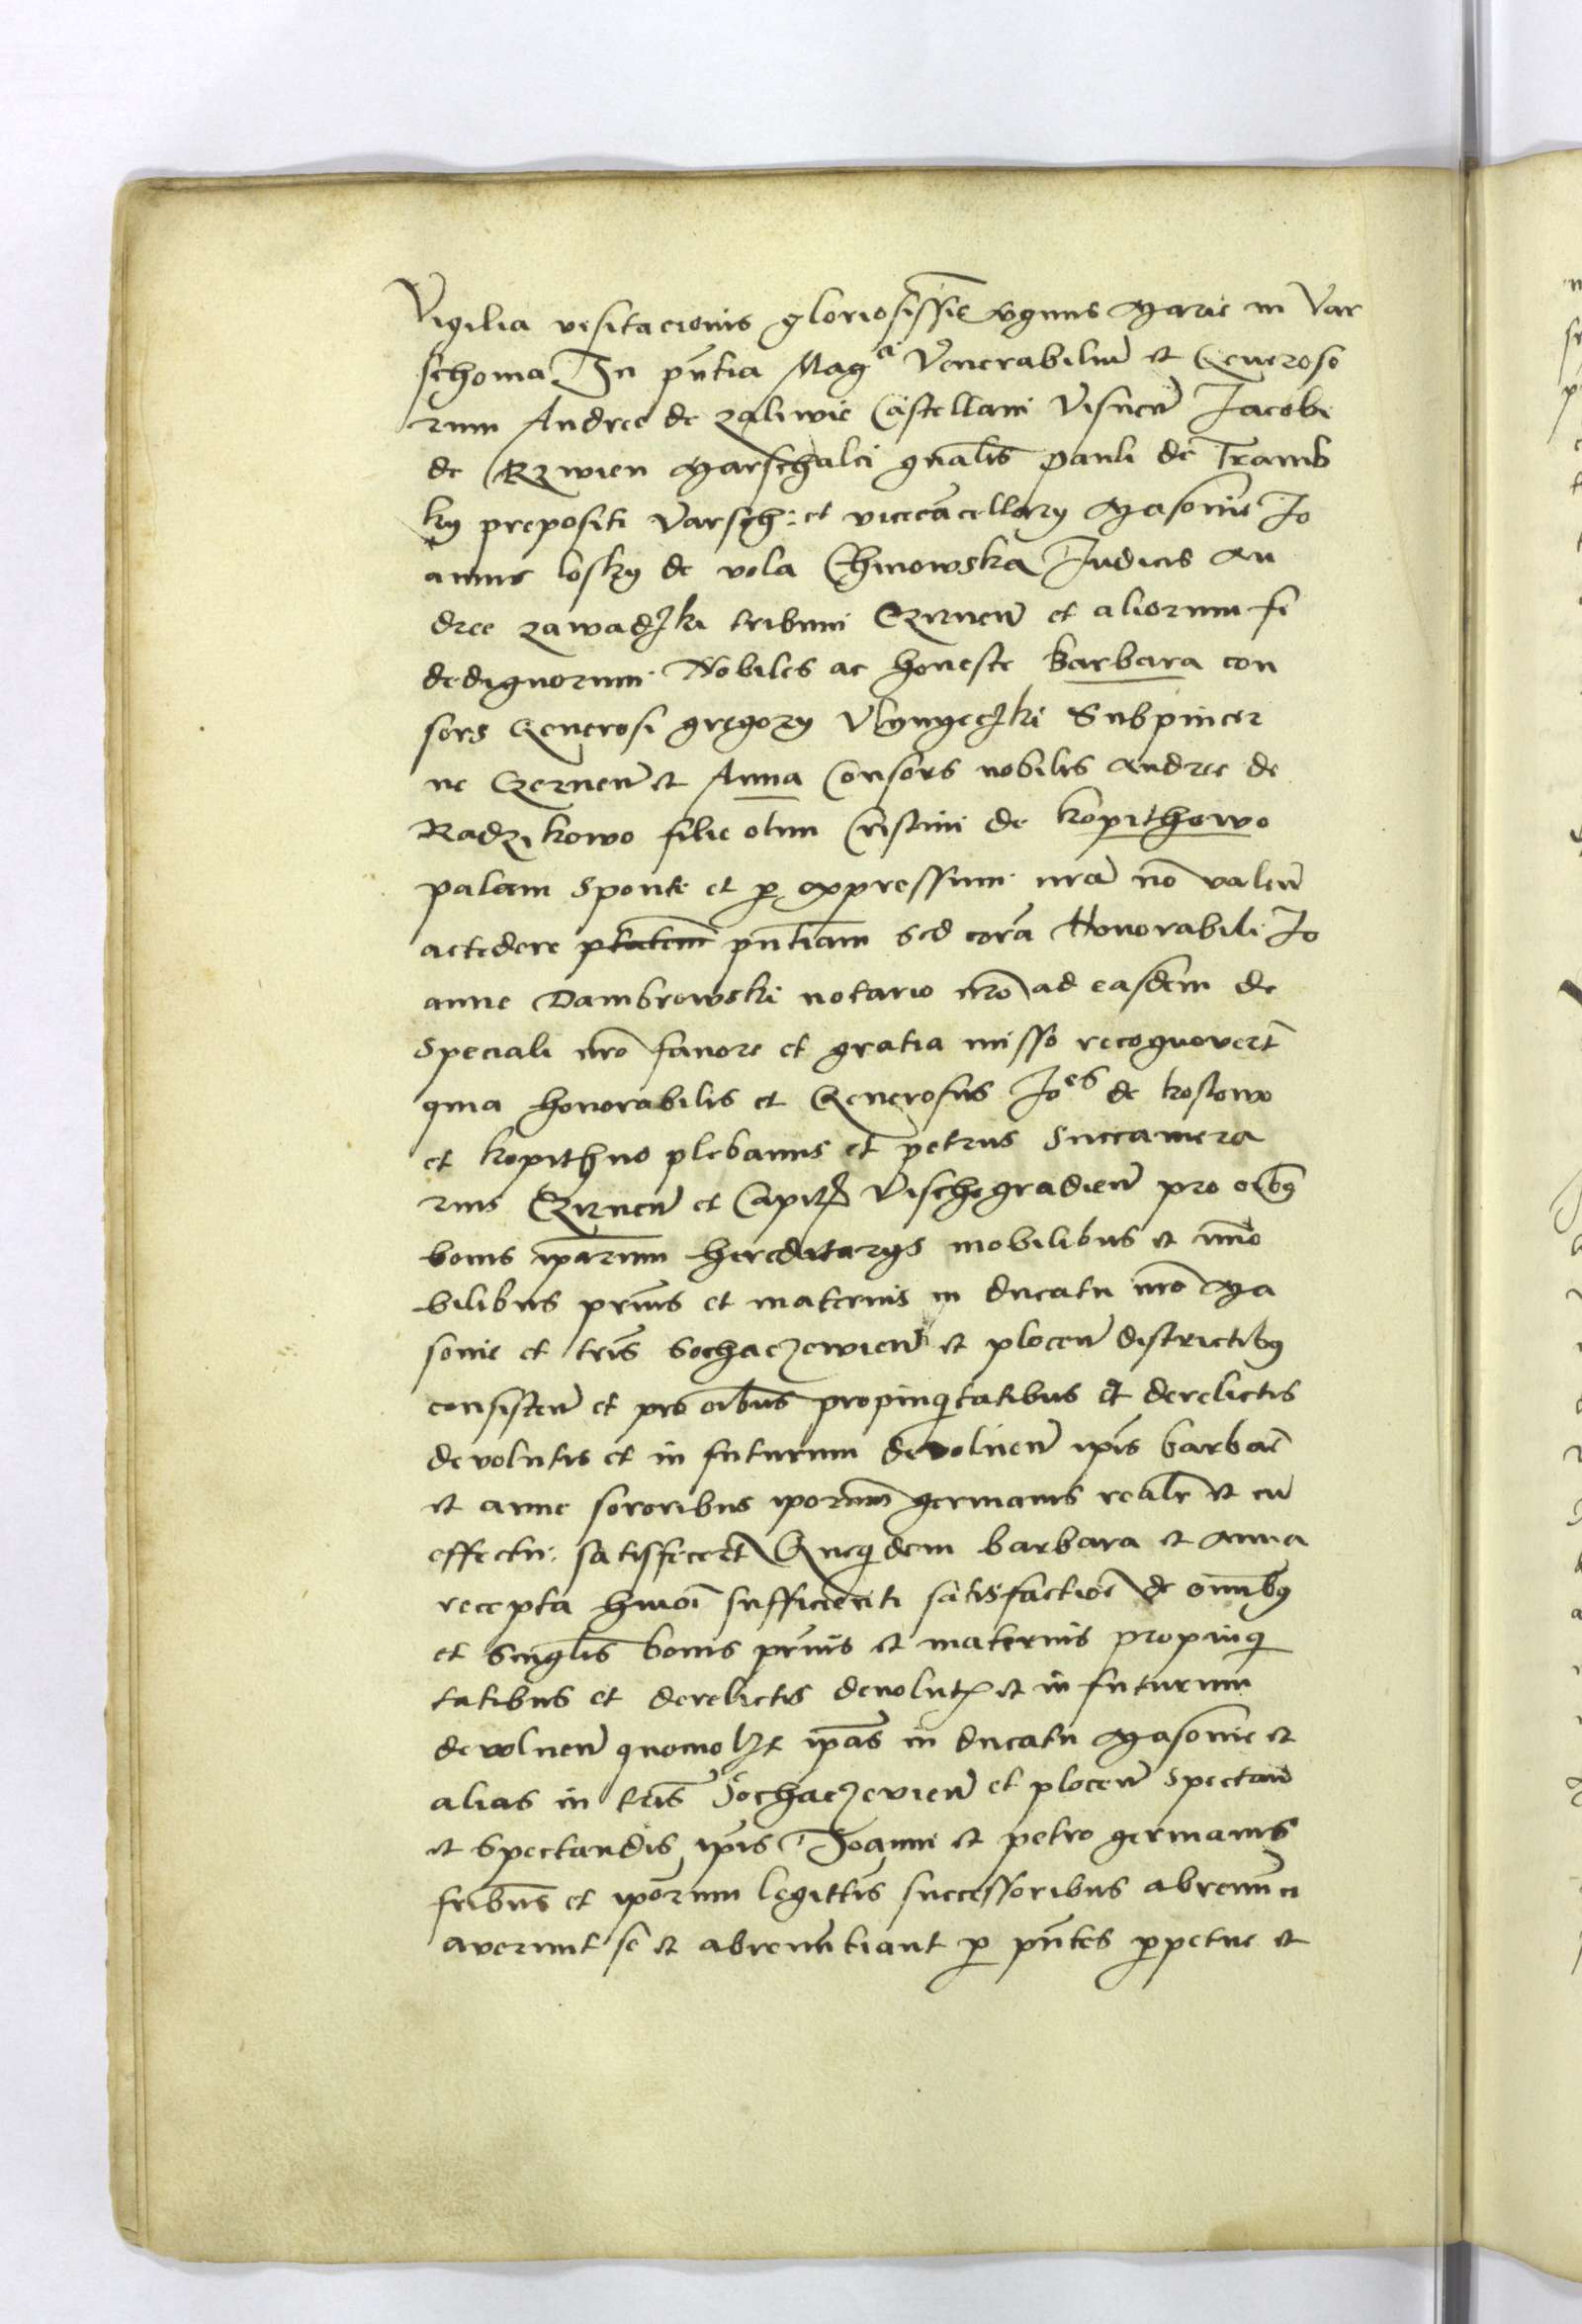 Vigilia visitacionis gloriosissie vginis Marie in Var
schovia In pntia Magca Venerabiliu et Generoso
rum Andree de zaliwie Castellani Visnen Jacobi
de Rzwien Marschalci gnalis pauli de Tramb
ky prepositi Varsch: et vicecacellary Masovie Jo
annis losky de vola Chinowska Judicis An
dree zawadzki tribuni Czirnen et aliorum fi
dedignorum. Nobiles ac honeste barbara con
sors Generosi gregory Vlynyeczki Subpincer
ne Czernen et Anna Consors nobilis Andree de
Radzikowo filie olim Cristini de kopithowo
palam sponte et p expressum nra no valen
accedere ptatem pntiam sed cora Honorabili Jo
anne Dambrowski notario nro ad easdem de
speciali nro favore et gratia misso recognovert
quia honorabilis et Generosus Joes de kostowo
et kopithno plebanus et petrus Succamera
rius Czirnen et Capit Vischegradien pro oibg
bonis iparum hereditarys mobilibus et immo
bilibus prnis et maternis in ducatu nro Ma
sovie et tris Sochaczewien et plocen districtibg
consisten et pro oibus propinqitatibus et derelictis
devolutis et in futurum devolven ipis barbare
et anne sororibus iporum germanis realr et cu
effectu satisfecert Queqdem barbara et Anna
recepta hmoi sufficienti satisfactioe de omibg
et singlis bonis prnis et maternis propinqi
tatibus et derelictis devolut et in futurum
devolven quomolzt ipas in ducatu Masovie et
alias in tris Sochaczevien et plocen spectan
et spectandis ipis Joanni et petro germanis
fribus et iporum legittis successoribus abrenunci
averunt se et abrenuntiant p pntes ppetue et